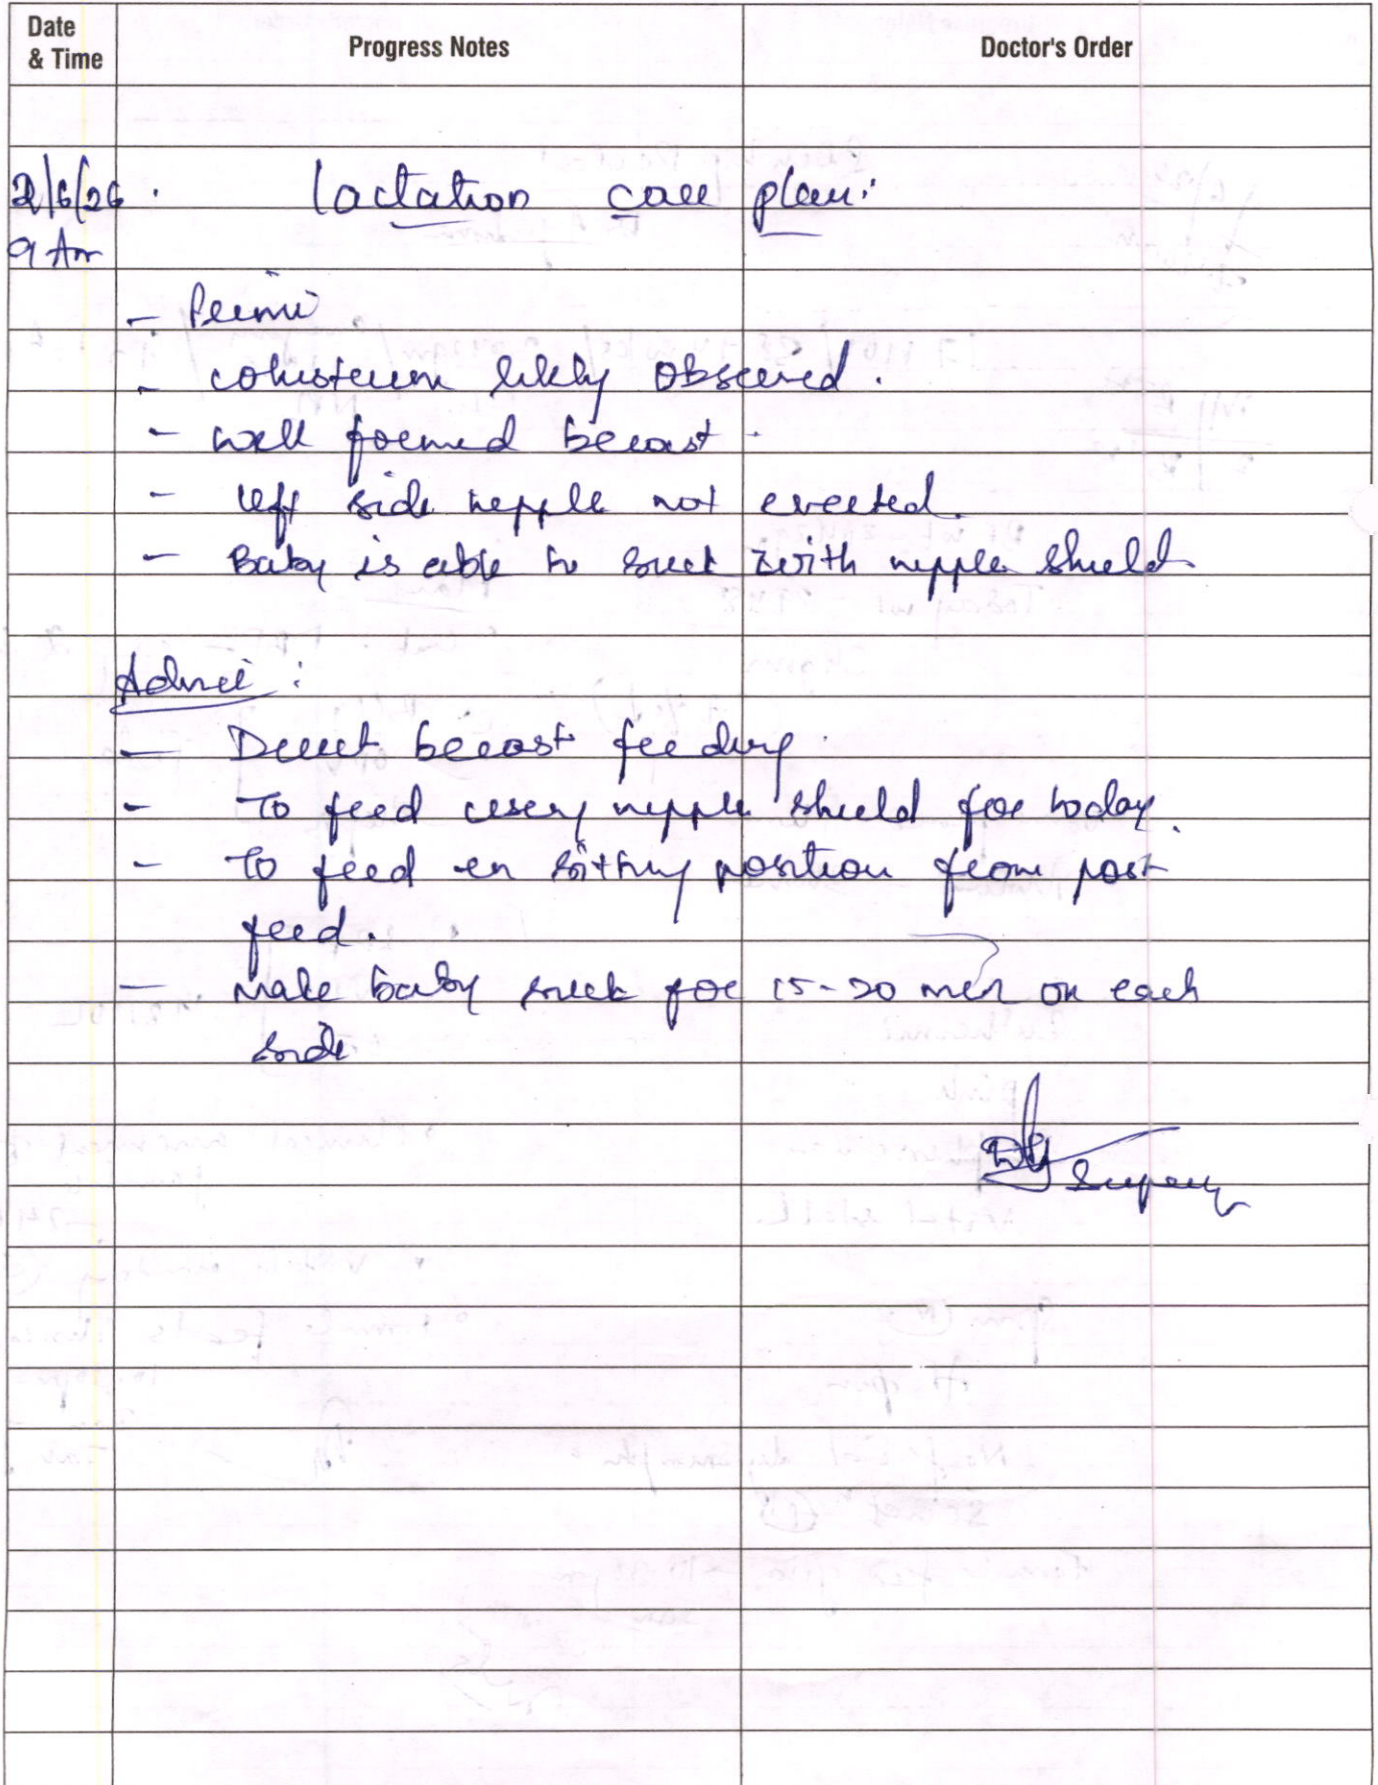 Date
& Time
Progress Notes
Doctor's Order
2/6/26.
9 Am
lactation care plan:
- Primi.
- colustrum likly observed.
- well formed breast.
- left side nipple not everted.
- Baby is able to suck with nipple shield
Advice :
- Direct breast feeding.
- To feed using nipple shield for today.
- To feed in sitting position from post
feed.
- Make baby suck for 15-20 min on each
side